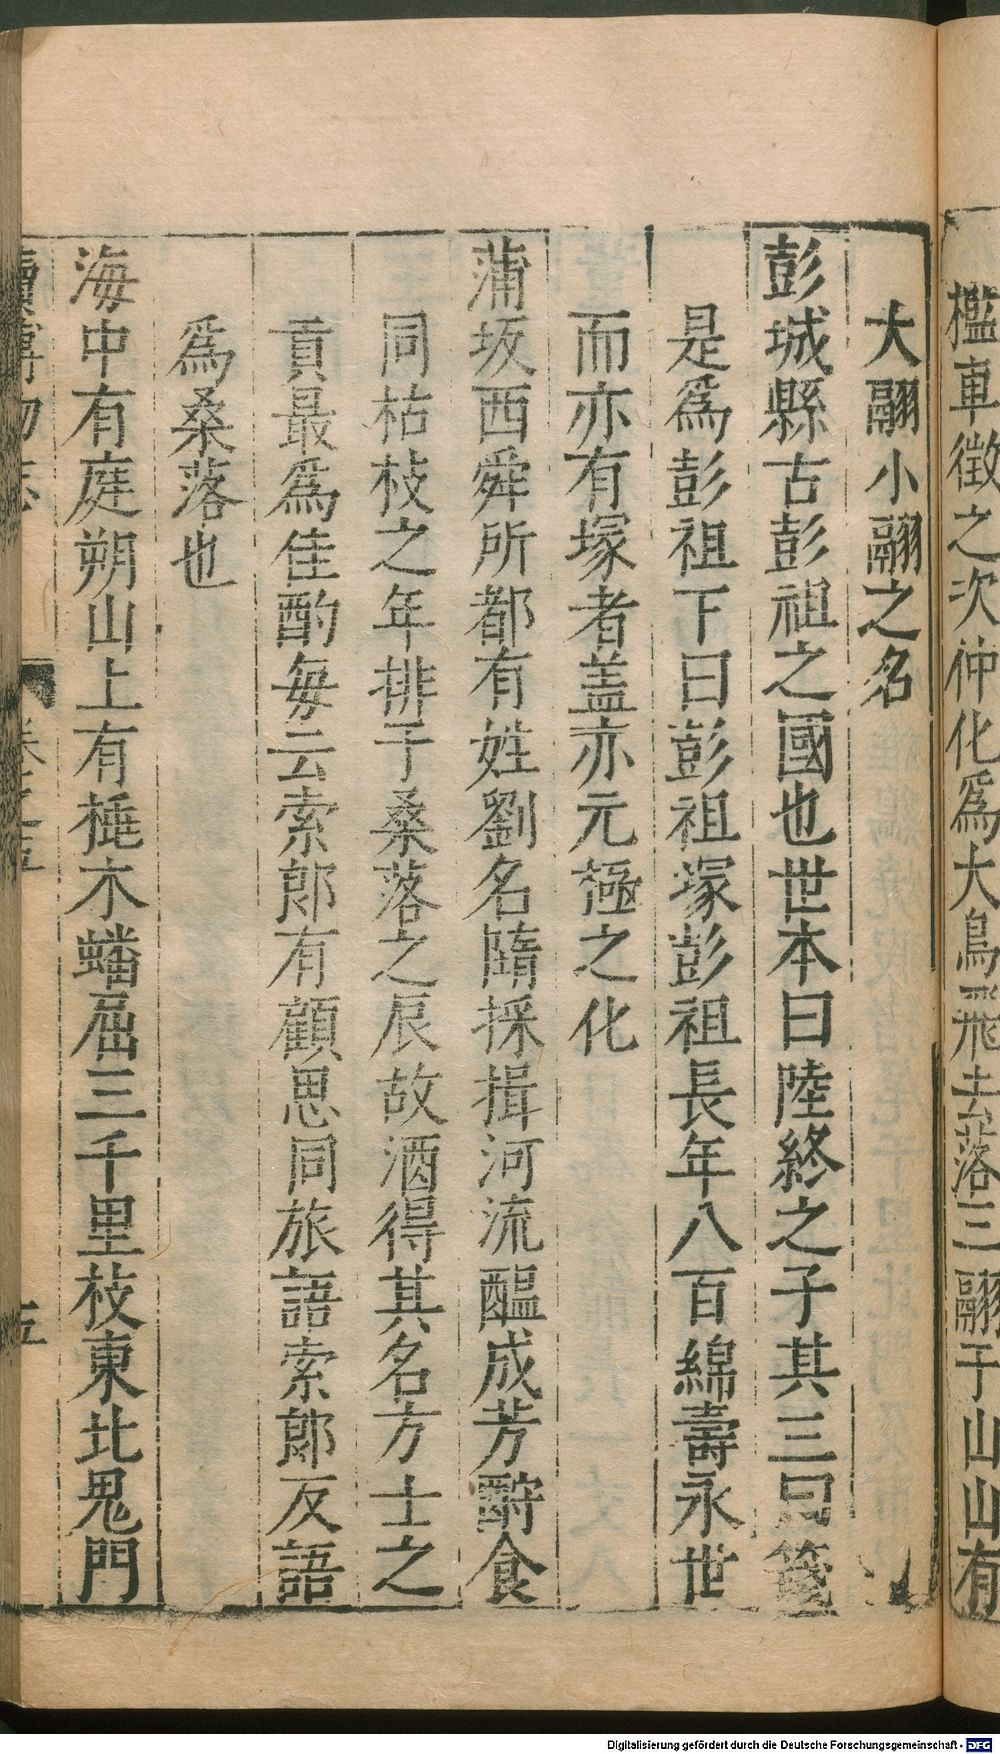 檻車徵之次仲化爲大鳥飛去落三翮于山山有
大翮小翮之名
彭城縣古彭祖之國也世本曰陸終之子其三曰籛
是爲彭祖下曰彭祖塚彭祖長年八百綿壽永世
而亦有塚者蓋亦元極之化
蒲坂西舜所都有姓劉名隋採揖河流醖成芳酧食
同枯枝之年排于桑落之辰故酒得其名方士之
貢最爲佳酌每云索郎有顧思同旅語索郎反語
爲桑落也
海中有庭朔山上有㮈木蟠屈三千里枝東北鬼門
續博物志
卷之五
五
Digitalisierung gefördert durch die Deutsche Forschungsgemeinschaft - DFG